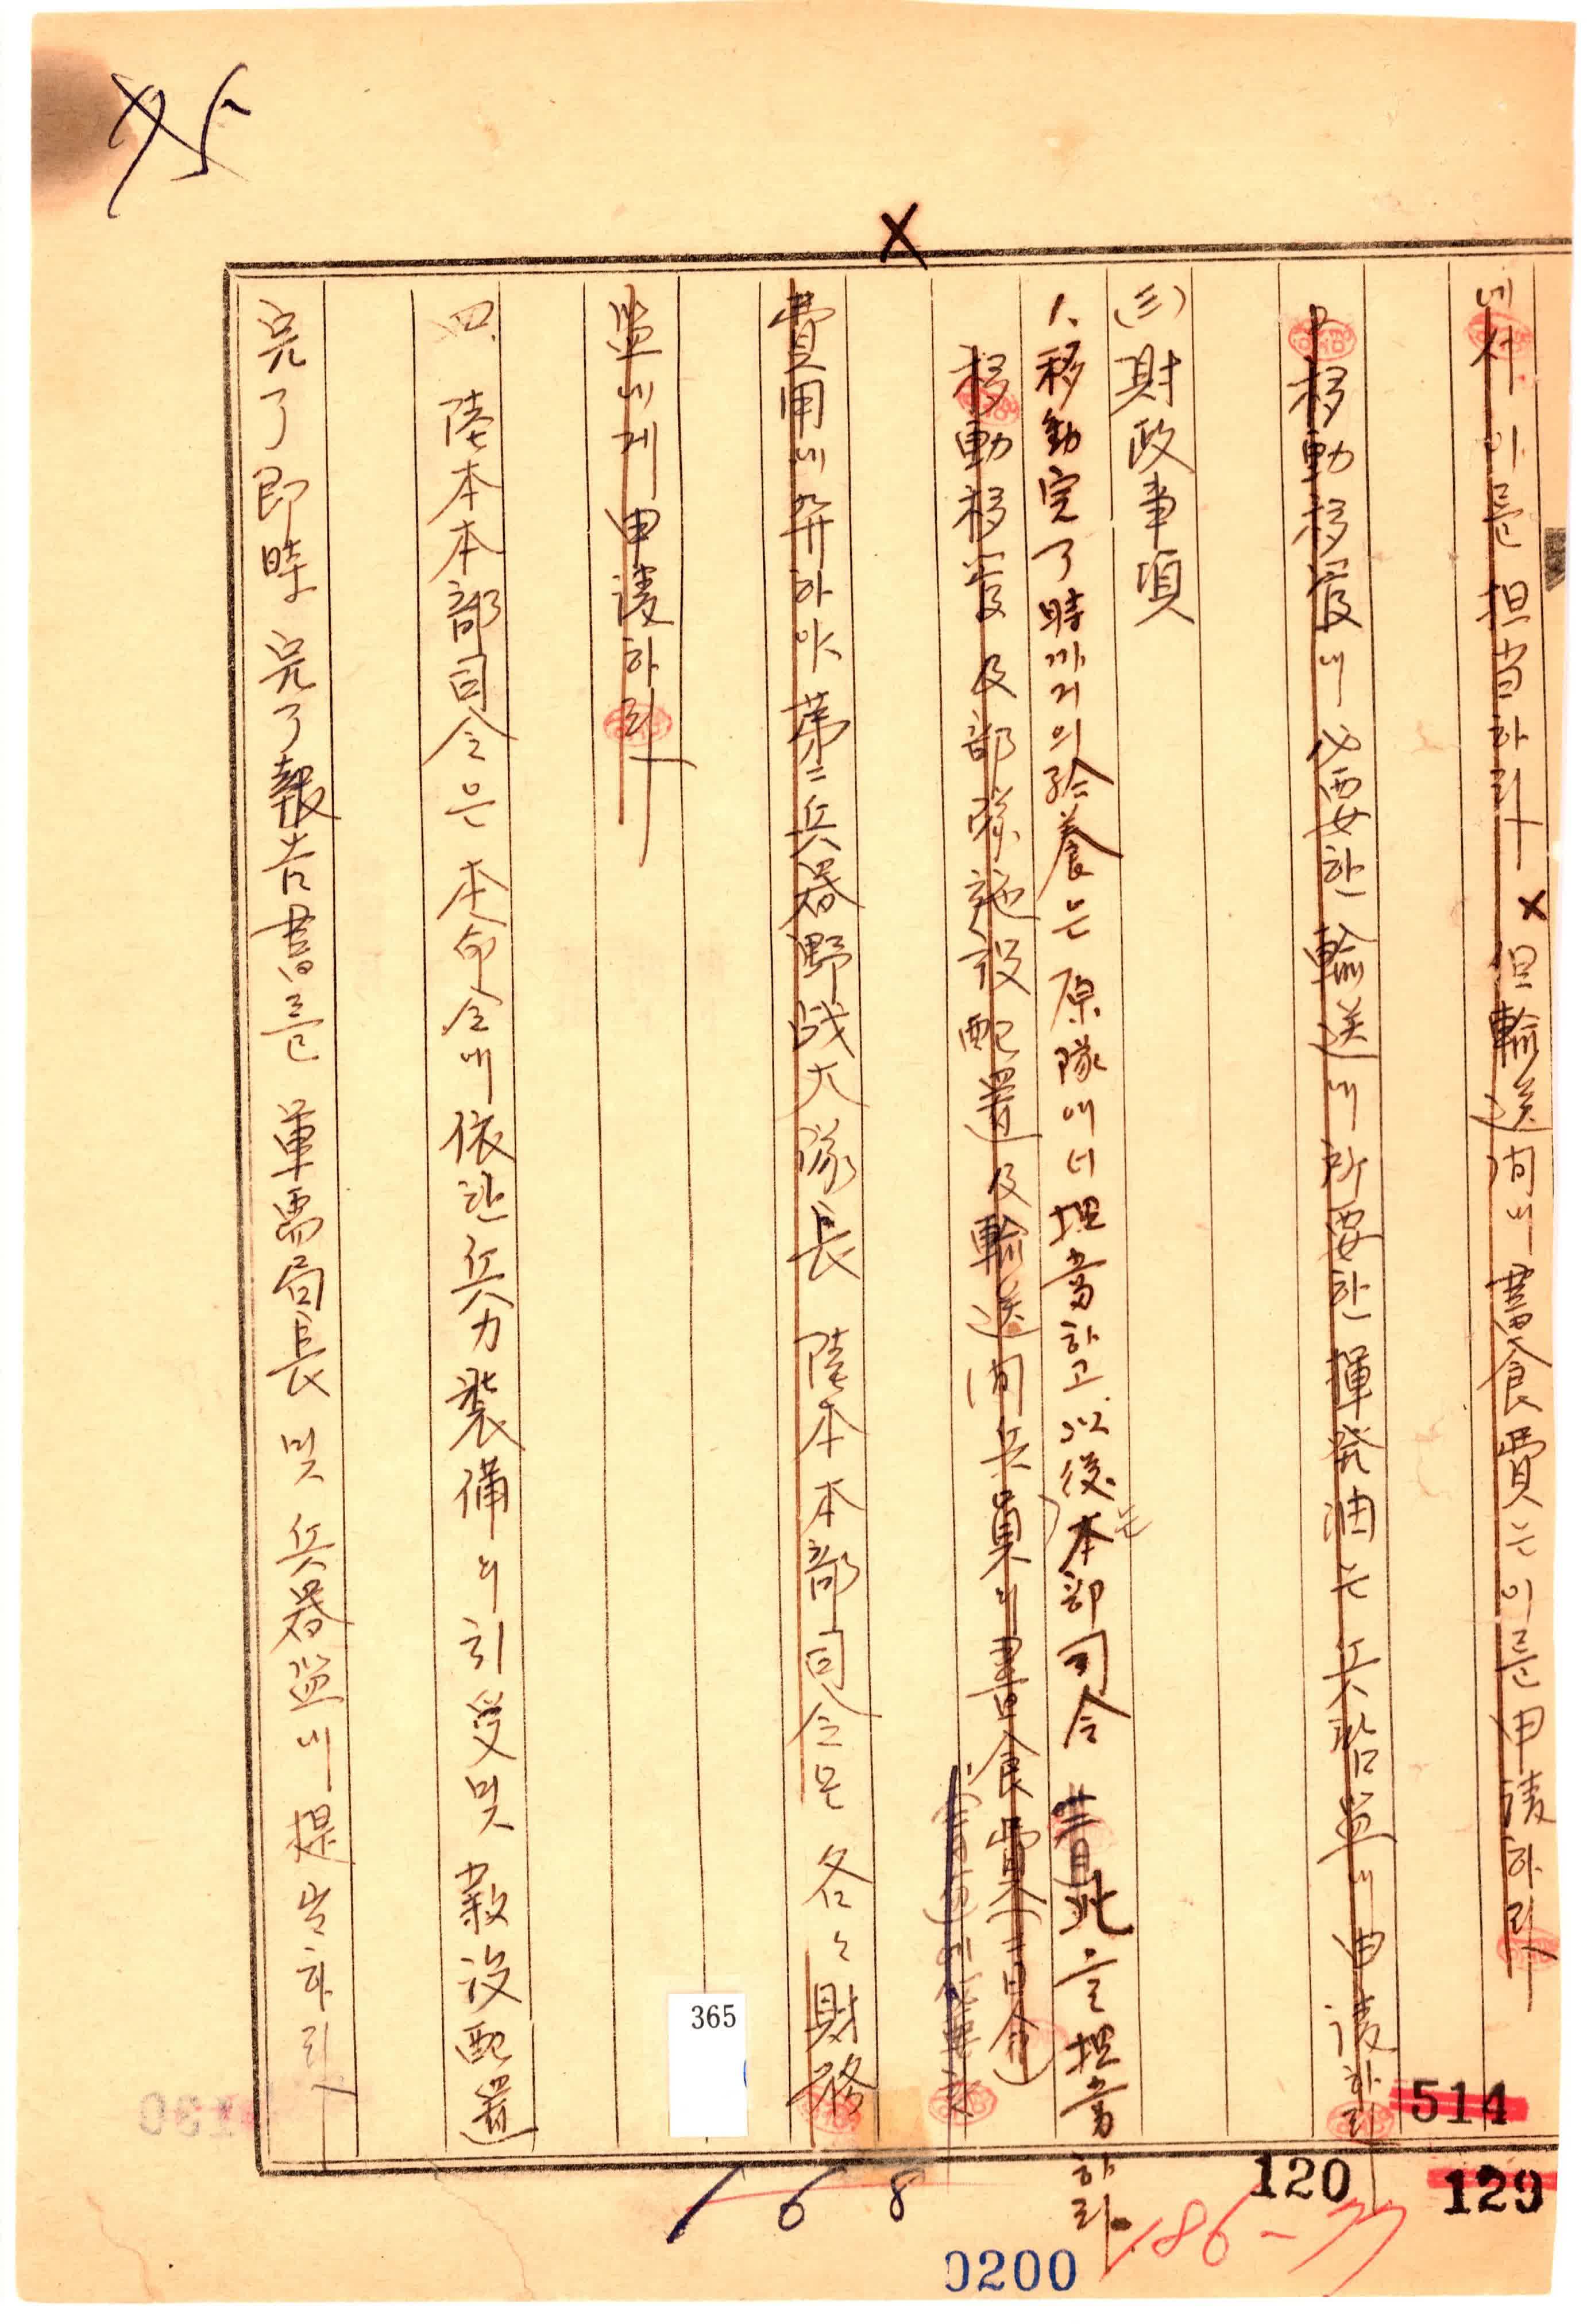 에서 이를 担当하라 但 輸送間에 蓄食費는 이를 申請하라
移動移管에 必要한 輸送에 所要한 揮発油는 兵站監에 申請하라
(三) 財政事項
1. 移動完了時까지의 給養은 原隊에서 担當하고 以後는 本部司令 此를 担當하라.
移動移管 及 部隊施設配置 及 輸送間 兵員의 蓄食費 (二日分)
費用에 弁하야 第二兵器野战大隊長 陸本本部司令은 各々 財務
監에게 申請하라
四. 陸本本部司令은 本命令에 依한 兵力装備의 引受 및 敍設配置
完了即時 完了報告書를 軍需局長 및 兵器監에 提出하라
45
365
514
120
129
168
186-33
0200